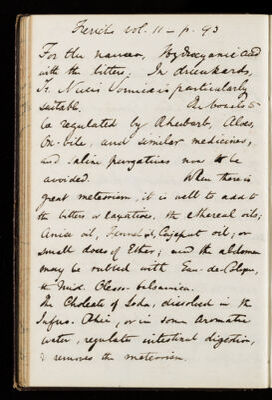 Frerichs vol. 11 – p. 93
For the nausea, Hydrocyanic acid
with the bitters; In drunkards,
Tr. Nucis Vomicae is particularly
suitable. The bowels to
be regulated by Rhubarb, Aloes,
Ox-bile, and similar medicines,
and saline purgatives are to be
avoided. When there is
great meteorism, it is well to add to
the bitters or laxatives, the ethereal oils;
Anise oil, Fennel d., Cajeput oil; or
small doses of Ether; and the abdomen
may be rubbed with Eau-de-Cologne,
or Mixt. Oleoso-balsamica.
The Choleate of Soda, dissolved in the
Infus. Rhei, or in some Aromatic
water, regulates intestinal digestion,
& removes the meteorism.